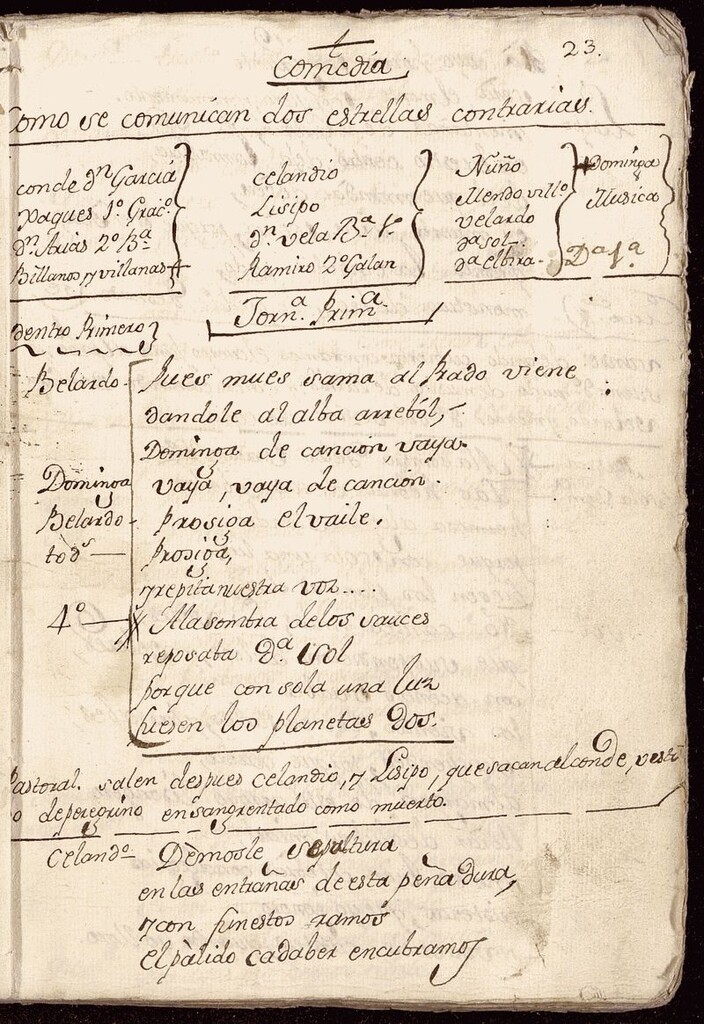 23.
Comedia
Como se comunican dos estrellas contrarias.
conde dⁿ Garcia
Paques 1º Gracº.
dⁿ Arias 2º Bª
Billanos y villanas
celandio
Lisipo
dⁿ vela Bª 1º
Ramiro 2º Galan
Nuño
Mendo villº.
velardo
dª sol.
dª elbira.
Dominga
Musica
Dª 1ª
dentro Primero
Jornª. Primª.
Belardo. Pues mues sama al Prado viene
dandole al alba arreból,
Dominga de canción, vaya.
Dominga vaya, vaya de canción.
Belardo. Prosiga el vaile.
todˢ — Prosiga,
y repita nuestra voz....
4º — A la sombra de los sauces
reposaba Dª. sol
porque con sola una luz
fuesen los planetas dos.
Pastoral. salen despues celandio, y Lisipo, que sacan al conde, vesti
o de peregrino ensangrentado como muerto.
Celandº Démosle sepultura
en las entrañas de esta peña dura,
y con funestos ramos
el pálido cadaber encubramos